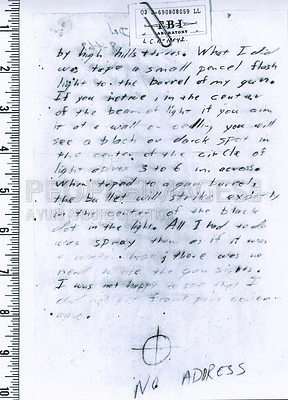 FBI
LABORATORY
by high hills + trees. What I did
was tape a small pencel flash
light to the barrel of my gun.
If you notice, in the center
of the beam of light if you aim
it at a wall or celling you will
see a black or darck spot in
the center of the circle of
light aprox 3 to 6 in. across.
When taped to a gun barrel,
the bullet will strike exactly
in the center of the black
dot in the light. All I had to do
was spray them as if it was
a water hose; there was no
need to use the gun sights.
I was not happy to see that I
did not get front page cover-
age.
NO ADDRESS
1
2
3
4
5
6
7
8
9
10